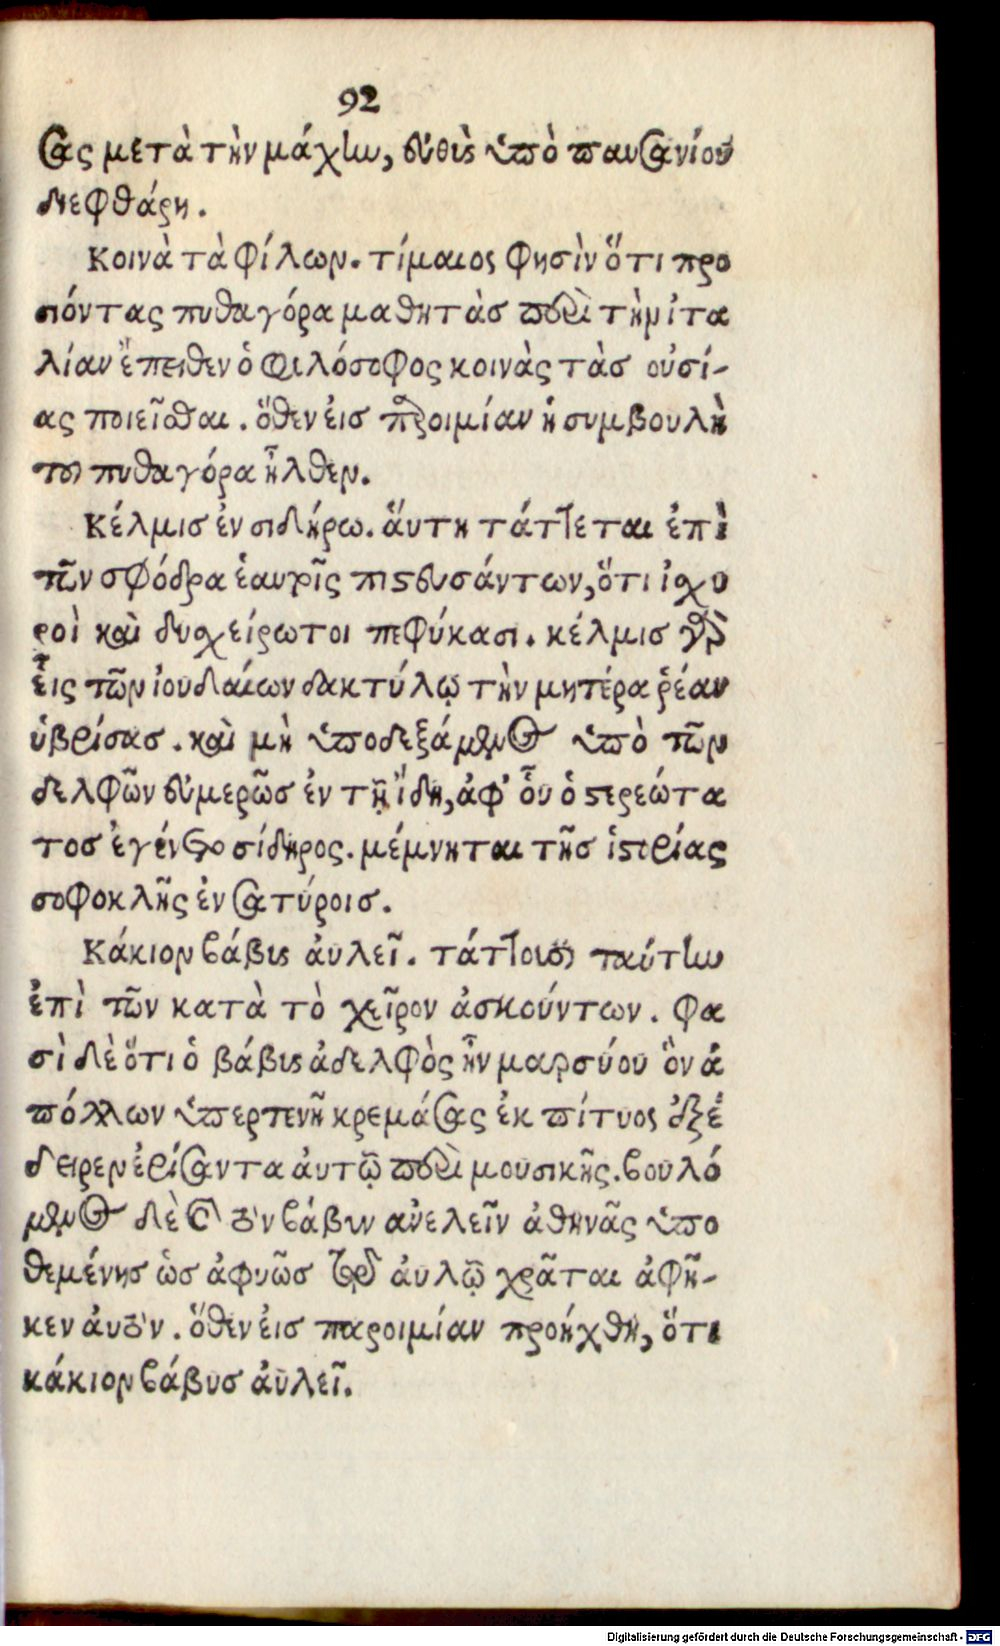 92
σας μετὰ τὴν μάχην, εὐθὺς ὑπὸ παυσανίου
διεφθάρη.
Κοινὰ τὰ φίλων. τίμαιος φησὶν ὅτι προ
σιόντας πυθαγόρα μαθητὰσ περὶ τὴν ἰτα
λίαν ἔπειθεν ὁ φιλόσοφος κοινὰς τὰσ οὐσί-
ας ποιεῖσθαι. ὅθεν ἐισ παροιμίαν ἡ συμβουλὴ
του πυθαγόρα ἦλθεν.
Κέλμισ ἐν σιδήρω. ἅυτη τάττεται ἐπὶ
τῶν σφόδρα ἑαυτοῖς πιστευσάντων, ὅτι ἰσχυ
ροὶ καὶ δυσχείρωτοι πεφύκασι. κέλμισ γὰρ
ἐις τῶν ἰουδαίων δακτύλῳ τὴν μητέρα ῥέαν
ὑβρίσασ. καὶ μὴ ὑποδεξάμενος ὑπὸ τῶν
δελφῶν εὐμερῶσ ἐν τῇ ἴδη, ἀφ' οὗ ὁ στερεώτα
τοσ ἐγένετο σίδηρος. μέμνηται τῆσ ἱστορίας
σοφοκλῆς ἐν σατύροισ.
Κάκιον βάβυς ἀυλεῖ. τάττουσι ταύτην
ἐπὶ τῶν κατὰ τὸ χεῖρον ἀσκούντων. φα
σὶ δὲ ὅτι ὁ βάβυς ἀδελφὸς ἦν μαρσύου ὃν ἀ
πόλλων ὑπερτενῆ κρεμάσας ἐκ πίτυος ἐξέ
δειρεν ἐρίσαντα ἀυτῷ περὶ μουσικῆς. βουλό
μενος δὲ καὶ τὸν βάβυν ανελεῖν ἀθηνᾶς ὑπο
θεμένησ ὡσ ἀφυῶσ τῷ ἀυλῷ χρᾶται ἀφῆ-
κεν ἀυτὸν. ὅθεν ἐισ παροιμίαν προήχθη, ὅτι
κάκιον βάβυσ ἀυλεῖ.
Digitalisierung gefördert durch die Deutsche Forschungsgemeinschaft - DFG